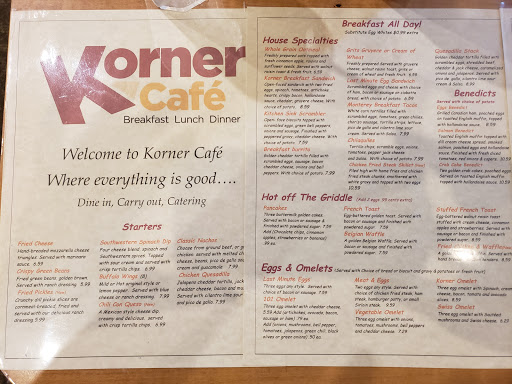 Korner
Café
Breakfast Lunch Dinner
Welcome to Korner Café
Where everything is good....
Dine in, Carry out, Catering
Starters
Fried Cheese
Hand-breaded mozzarella cheese
triangles. Served with marinara
sauce. 6.59
Crispy Green Beans
Fried green beans, golden brown.
Served with ranch dressing.
Fried Pickles
Crunchy dill pickle slices are
cornmeal breaded, fried and
served with our delicious ranch
dressing 5.99
Southwestern Spinach Dip
Four cheese blend, spinach and
Southwestern spices. Topped
with sour cream and served with
crisp tortilla chips.
Buffalo Wings (8)
Mild or Hot original style or
lemon pepper. Served with blue
cheese or ranch dressing
Chili Con Queso
A Mexican style cheese dip,
creamy and delicious, served
with crisp tortilla chips. 6.99
Classic Nachos
Choose from ground beef, or g
chicken, served with melted ch
cheese, beans, pico de gallo so
cream and guacamole 7.99
Chicken Quesadilla
Jalapeño cheddar tortilla, jack
cheddar cheese, bacon and mu
Served with cilantro lime sour
and pico de gallo. 7.59
Breakfast All Day!
Substitute Egg Whites $0.99 extra
House Specialties
Whole Grain Oatmeal
Freshly prepared and topped with
fresh cinnamon apple, raisins and
sunflower seeds. Served with walnut
raisin toast & fresh fruit 6.59
Korner Breakfast Sandwich
Open-faced sandwich with two fried
eggs, spinach, tomatoes, artichoke
hearts, crispy bacon, hollandaise
sauce, cheddar, gruyere cheese. With
choice of potato.
Kitchen Sink Scrambler
Open-face biscuits topped with
scrambled eggs, green bell peppers,
onions and sausage. Finished with
peppered gravy, cheddar cheese,
choice of potato
Breakfast Burrito
Golden cheddar tortilla filled with
scrambled eggs, bacon, sausage,
cheddar cheese, onions and bell
peppers. With choice of potato 7.59
Grits Gruyere or Cream of
Wheat
Freshly prepared served with gruyere
cheese, walnut raisin toast, grits or
cream of wheat and fresh fruit 6.59
Last Minute Egg Sandwich
Scrambled eggs and cheese with choice
of ham, bacon or sausage on ciabatta
bread, with choice of potato
Monterey Breakfast Tacos
White corn tortillas filled with
scrambled eggs, tomatoes, green chilies
chorizo sausage, tortilla strips, lettuce,
pico de gallo and cilantro lime sour
cream. Served with Salsa.
Chilaquiles
Tortilla chips, scrambled eggs, onions,
tomato, jalapeno pepper and Salsa.
With choice of potato
Chicken Fried Steak
Filled with home fries and chicken
fried steak, cheese, smothered with
white gravy and topped with two eggs
Quesadilla Stack
Golden cheddar tortilla filled with
scrambled eggs, shredded beef,
cheddar & jack cheese, caramelized
onions and jalapenos. Served with
pico de gallo, cilantro lime sour
cream & Salsa.
Benedicts
Served with choice of potato
Club Benedict
Grilled Canadian ham, poached eggs
on toasted English muffin, topped
with hollandaise sauce.
Salmon Benedict
Toasted English muffin topped with
dill cream cheese spread, smoked
salmon, poached eggs and hollandaise
sauce. Finished with fresh diced
tomatoes, red onions & capers.
Crab Cake Benedict
Two golden crab cakes, poached eggs
on toasted English muffin, topped
with hollandaise sauce.
Hot off The Griddle
Pancakes
Three buttermilk golden cakes.
Served with bacon or sausage &
finished with powdered sugar.
Add (Chocolate chips, cinnamon
apples, strawberries or banana)
French Toast
Egg-battered golden toast. Served
with bacon or sausage &
finished with powdered sugar.
Belgian Waffle
A golden Belgian Waffle. Served
with bacon or sausage &
finished with powdered sugar
Stuffed French Toast
Egg-battered walnut raisin toast
stuffed with cream cheese, cinnamon
apples and strawberries. Served with
bacon or sausage and finished with
powdered sugar.
Eggs & Omelets (Served with choice of bread or biscuit and gravy & potatoes or fresh fruit)
Last Minute Eggs
Three eggs any style. Served with
choice of bacon or sausage.
101 Omelet
Three egg omelet with cheddar cheese.
5.59 Add (artichokes, avocado, bacon,
sausage or ham)
Add (onions, mushrooms, bell pepper,
tomatoes, jalapenos, green chili, black
olives or green onions)
Meat & Eggs
Two eggs any style. Served with
choice of chicken fried steak, ham
steak, hamburger patty, or small
Sirloin steak.
Vegetable Omelet
Three egg omelet with onions,
tomatoes, mushrooms, bell peppers
and cheddar cheese. 7.59
Korner Omelet
Three egg omelet with Spinach, cream
cheese, bacon, tomato and avocado
slices.
Swiss Omelet
Three egg omelet with sautéed
mushrooms and Swiss cheese.